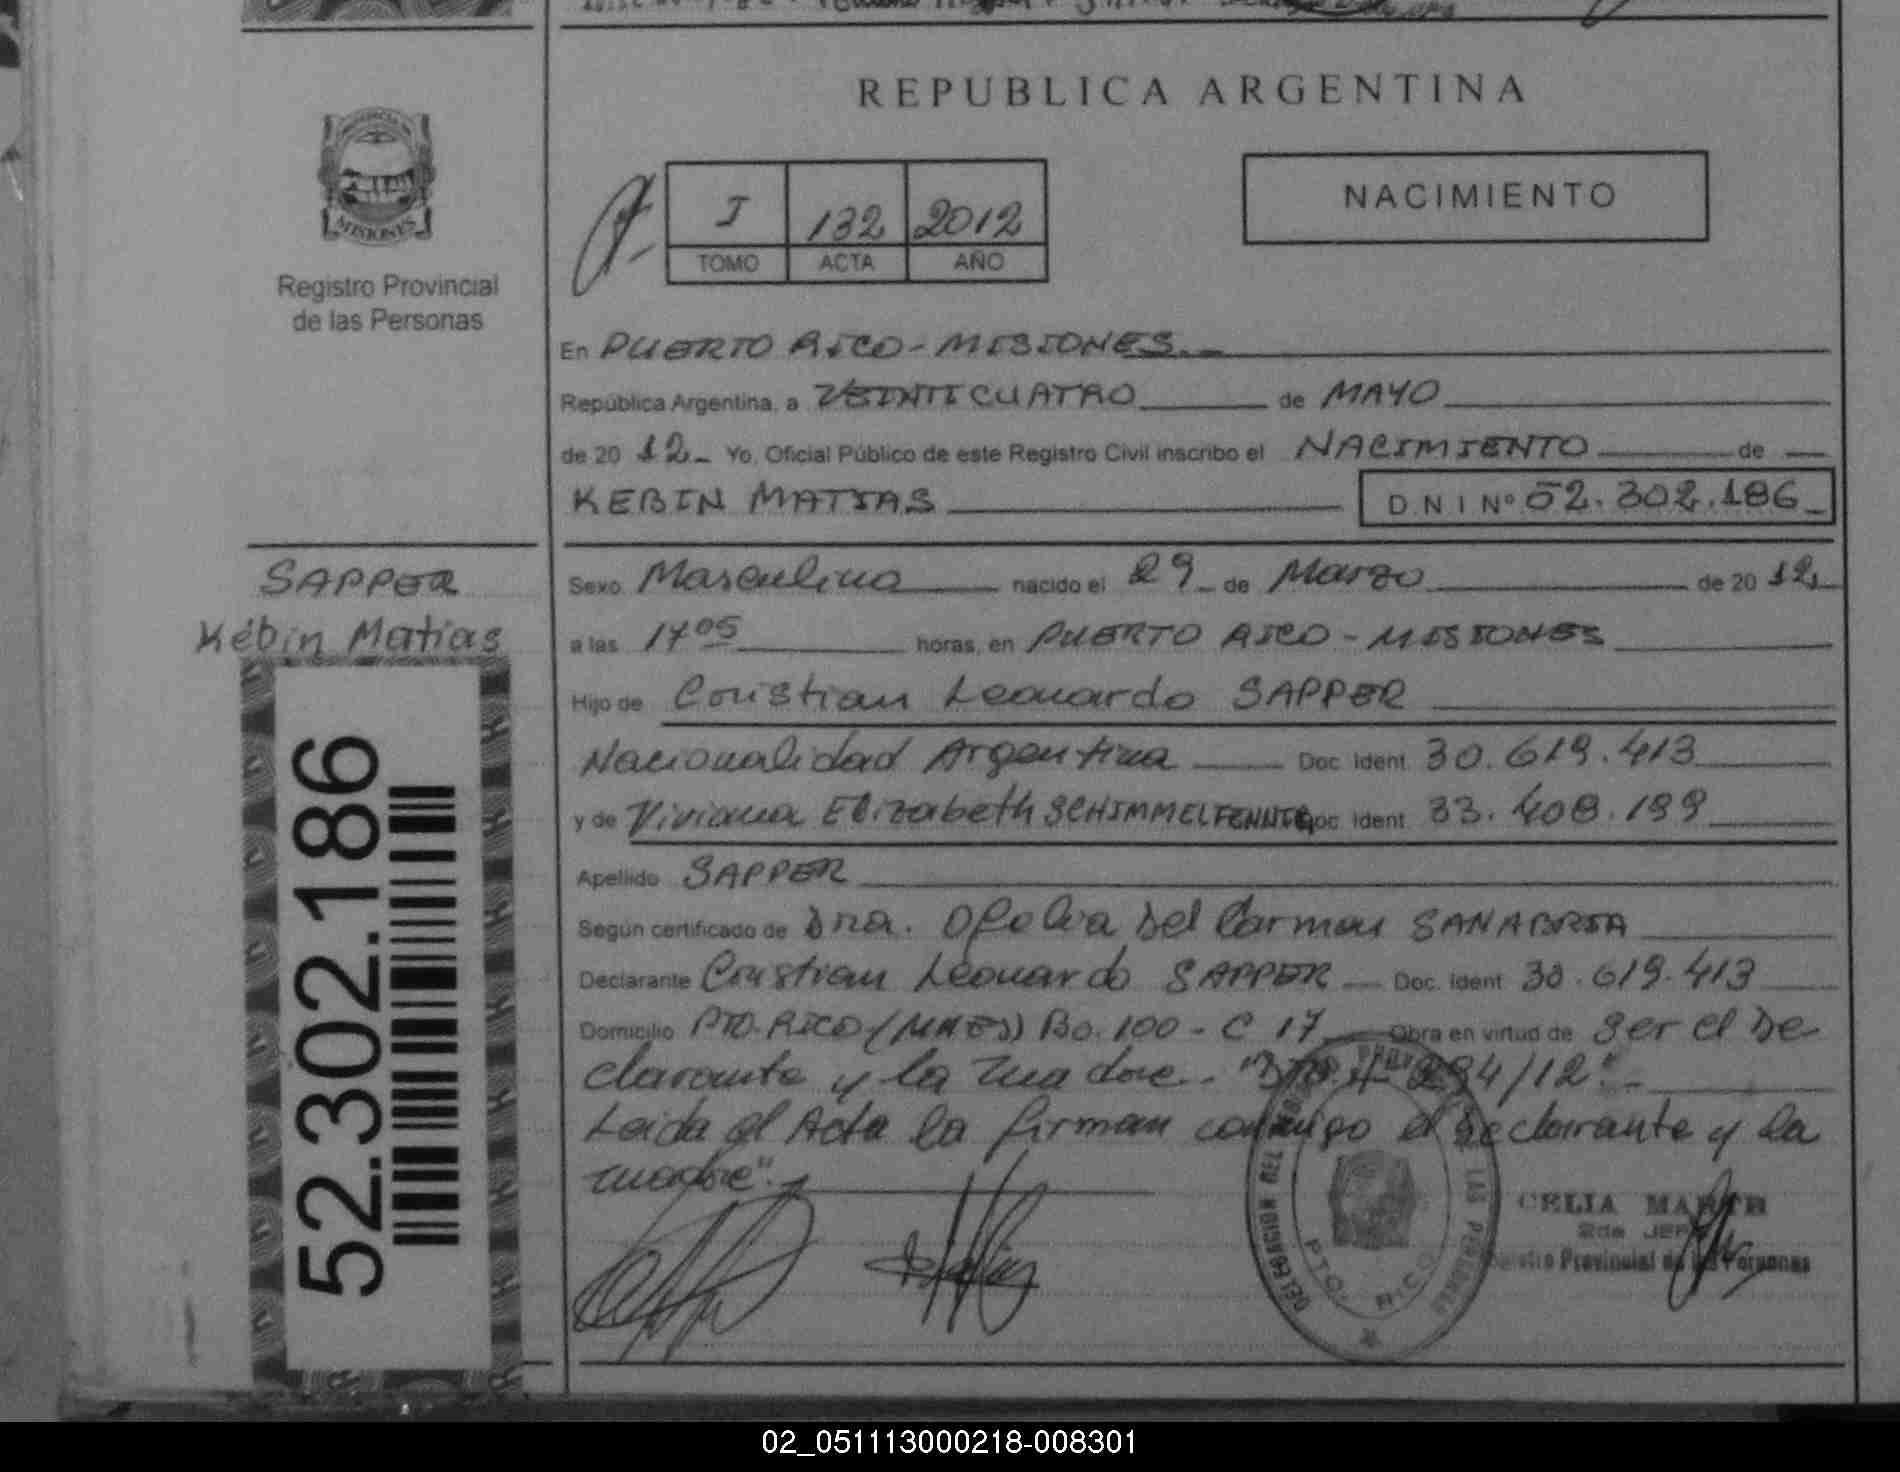 REPUBLICA ARGENTINA
MISIONES
Registro Provincial
de las Personas
I 132 2012
TOMO ACTA AÑO
NACIMIENTO
En PUERTO RICO - MISIONES.
República Argentina, a VEINTICUATRO de MAYO
de 20 12 Yo, Oficial Público de este Registro Civil inscribo el NACIMIENTO de
KEBIN MATIAS D N I Nº 52.302.186
SAPPER
Kébin Matias
52.302.186
Sexo Masculino nacido el 29 de Marzo de 20 12
a las 17 05 horas, en PUERTO RICO - MISIONES
Hijo de Cristian Leonardo SAPPER
Nacionalidad Argentina Doc. Ident. 30.619.413
y de Viviana Elizabeth SCHIMMELFENNIG Doc. Ident. 33.408.199
Apellido SAPPER
Según certificado de Dra. Ofelia Del Carmen SANABRIA
Declarante Cristian Leonardo SAPPER Doc. Ident. 30.619.413
Domicilio PTO. RICO (MNES) Bo. 100 - C 17 Obra en virtud de Ser el De
clarante y la madre. 294/12".
Leida el Acta la firman conmigo el declarante y la
madre".
DELEGACION DEL LAS PERSONAS
PTO. RICO
CELIA
2da JEFE
Registro Provincial de las Personas
02_051113000218-008301